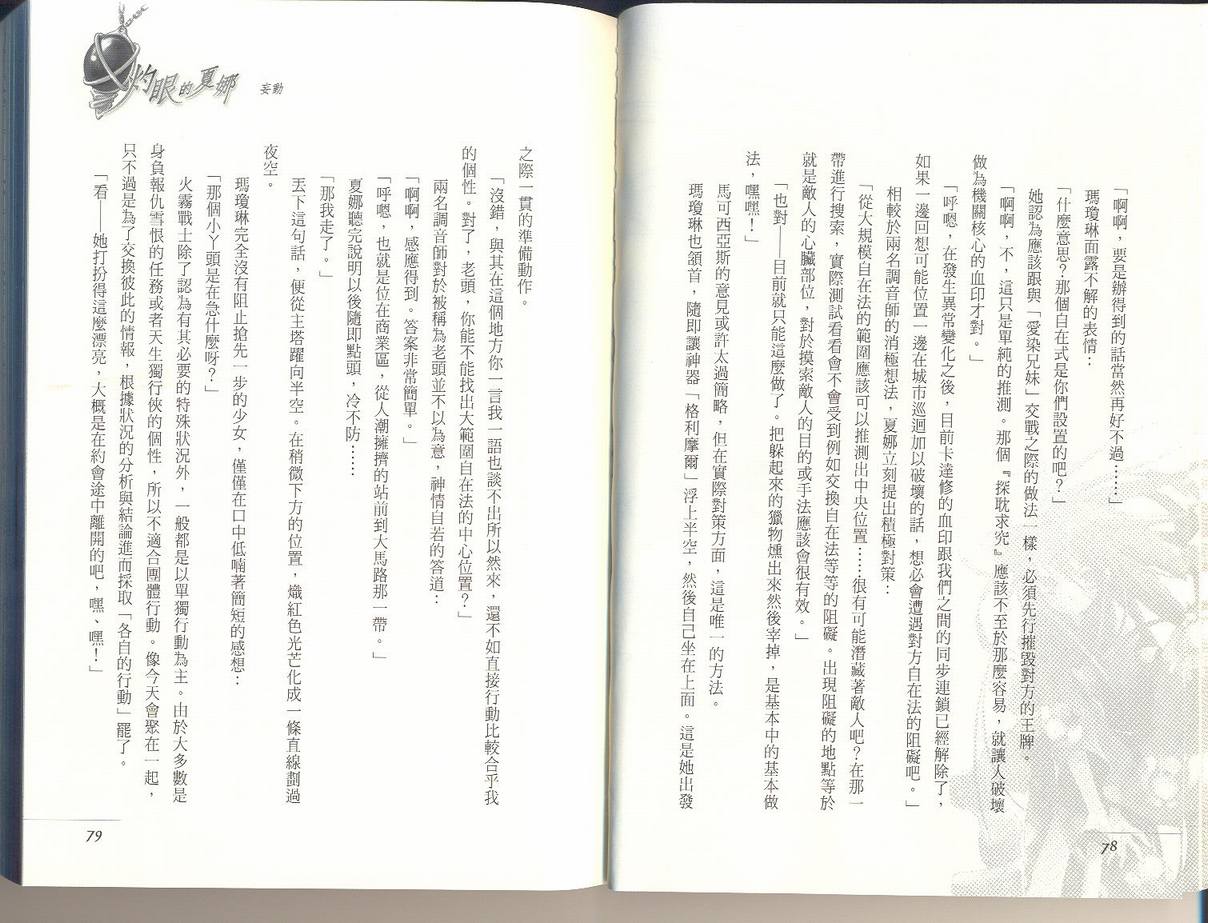 「啊啊，要是辦得到的話當然再好不過……」
瑪瓊琳面露不解的表情：
「什麼意思？那個自在式是你們設置的吧？」
她認為應該跟與「愛染兄妹」交戰之際的做法一樣，必須先行摧毀對方的王牌。
「啊啊，不，這只是單純的推測。那個『探耽求究』應該不至於那麼容易，就讓人破壞
做為機關核心的血印才對。」
「呼嗯，在發生異常變化之後，目前卡達修的血印跟我們之間的同步連鎖已經解除了，
如果一邊回想可能位置一邊在城市巡迴加以破壞的話，想必會遭遇對方自在法的阻礙吧。」
相較於兩名調音師的消極想法，夏娜立刻提出積極對策：
「從大規模自在法的範圍應該可以推測出中央位置……很有可能潛藏著敵人吧？在那一
帶進行搜索，實際測試看看會不會受到例如交換自在法等等的阻礙。出現阻礙的地點等於
就是敵人的心臟部位，對於摸索敵人的目的或手法應該會很有效。」
「也對——目前就只能這麼做了。把躲起來的獵物燻出來然後宰掉，是基本中的基本做
法，嘿嘿！」
馬可西亞斯的意見或許太過簡略，但在實際對策方面，這是唯一的方法。
瑪瓊琳也頷首，隨即讓神器「格利摩爾」浮上半空，然後自己坐在上面。這是她出發
78
灼眼的夏娜 妄動
之際一貫的準備動作。
「沒錯，與其在這個地方你一言我一語也談不出所以然來，還不如直接行動比較合乎我
的個性。對了，老頭，你能不能找出大範圍自在法的中心位置？」
兩名調音師對於被稱為老頭並不以為意，神情自若的答道：
「啊啊，感應得到。答案非常簡單。」
「呼嗯，也就是位在商業區，從人潮擁擠的站前到大馬路那一帶。」
夏娜聽完說明以後隨即點頭，冷不防……
「那我走了。」
丟下這句話，便從主塔躍向半空。在稍微下方的位置，熾紅色光芒化成一條直線劃過
夜空。
瑪瓊琳完全沒有阻止搶先一步的少女，僅僅在口中低喃著簡短的感想：
「那個小丫頭是在急什麼呀？」
火霧戰士除了認為有其必要的特殊狀況外，一般都是以單獨行動為主。由於大多數是
身負報仇雪恨的任務或者天生獨行俠的個性，所以不適合團體行動。像今天會聚在一起，
只不過是為了交換彼此的情報，根據狀況的分析與結論進而採取「各自的行動」罷了。
「看——她打扮得這麼漂亮，大概是在約會途中離開的吧，嘿、嘿！」
79